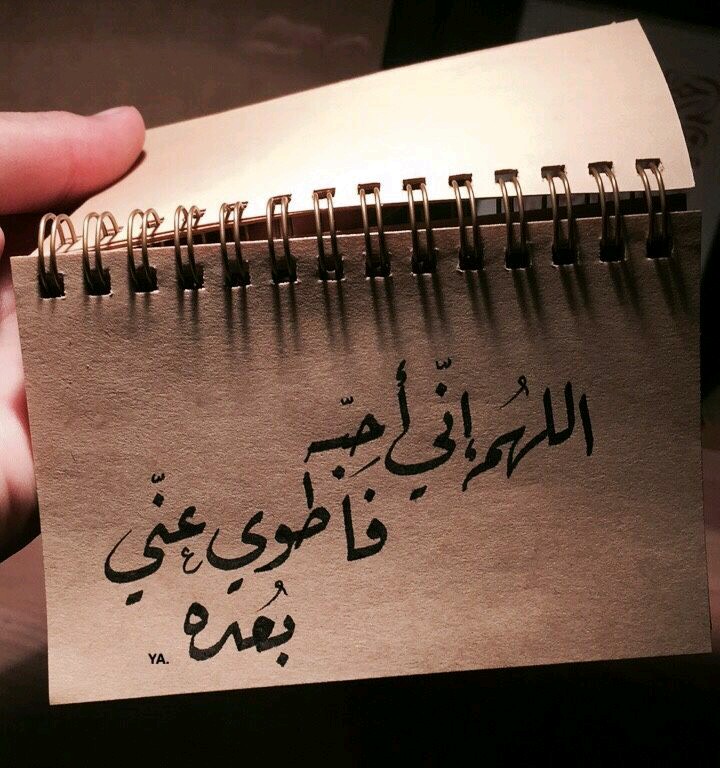 اللهُم إنّي أُحِبّه
فأطوي عنّي
بُعده
YA.